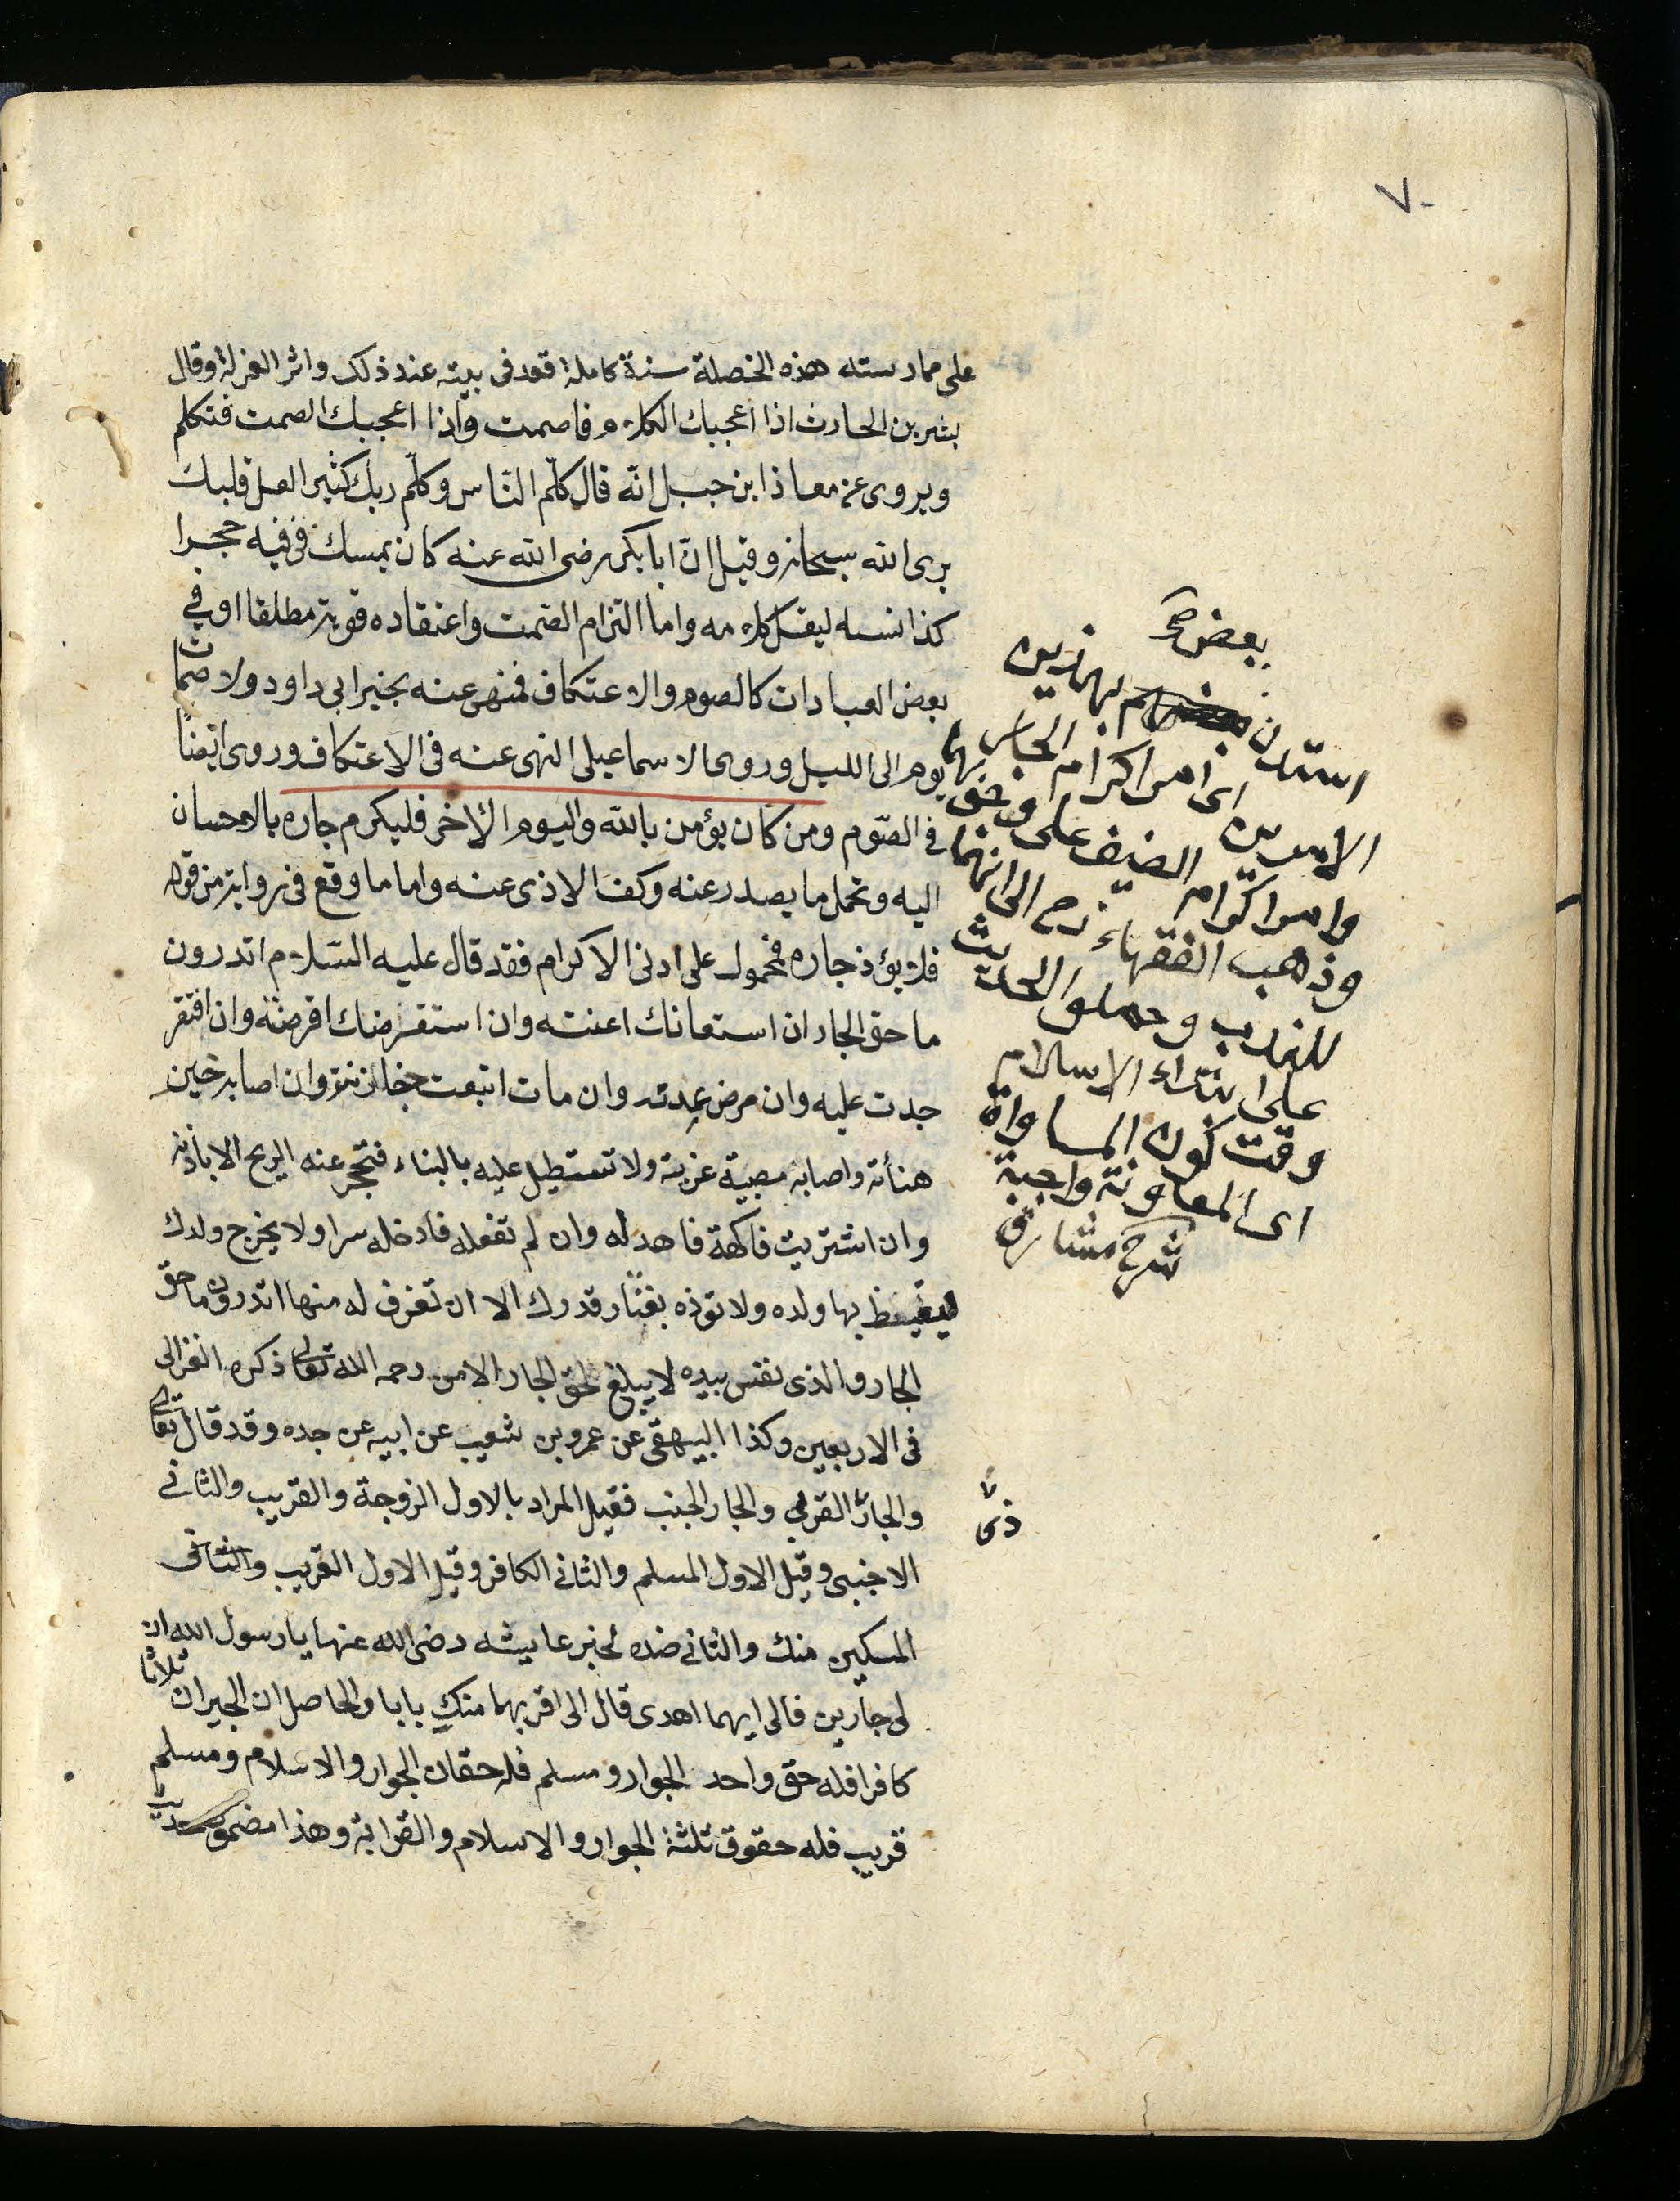 ٧٠
على ممارسته هذه الخصلة سنة كاملة قعد فى بيته عند ذلك واثر العزلة وقال
بشر بن الحارث اذا اعجبك الكلام فاصمت واذا اعجبك الصمت فتكلم
ويروى عن معاذ ابن جبل انّه قال كلّم النّاس وكلّم ربك كثيرا لعل قلبك
يرى الله سبحانه وقيل انّ ابا بكر رضى الله عنه كان يمسك فى فيه حجرا
كذا نسه ليقل كلامه واما التزام الصّمت واعتقاده قوبة مطلقا او في
بعض العبادات كالصوم والاعتكاف فمنهى عنه بخبر ابى داود ولا صمات
يوم الى الليل وروى الاسماعيلى النهى عنه فى الاعتكاف وروى ايضًا
فى الصّوم ومن كان يؤمن بالله واليوم الأخر فليكرم جاره بالاحسان
اليه وتحمل ما يصدر عنه وكف الاذى عنه واما ما وقع فى رواية من قوله
فلا يؤذ جاره فمحمول على ادنى الاكرام فقد قال عليه السّلام اتدرون
ما حق الجار ان استعانك اعنته وان استقرضك اقرضته وان افتقر
جدت عليه وان مرض عدته وان مات اتبعت جنازته وان اصابه خير
هنأته واصابه مصيبة عزيته ولا تستطيل عليه بالبناء فتحجر عنه الريح الا باذنه
وان اشتريت فاكهة فاهد له وان لم تفعله فادخله سرا ولا يخرج ولدك
ليغيظ بها ولده ولا توذه بقتار قدرك الا ان تغرف له منها اتدرون ما حق
الجار والذى نفسى بيده لا يبلغ لحق الجار الا من رحمه الله تعالى ذكره الغزالى
فى الاربعين وكذا البيهقى عن عمرو بن شعيب عن ابيه عن جده وقد قال تعالى
والجار القربى والجار الجنب فقيل المراد بالاول الزوجة والقريب والثانى
الاجنبى وقيل الاول المسلم والثانى الكافر وقيل الاول القريب والثانى
المسكين منك والثانى ضده لخبر عايشه رضى الله عنها يا رسول الله ان
لى جارين فالى ايهما اهدى قال الى اقربهما منكِ بابا والحاصل ان الجيران ثلاثا
كافر افله حق واحد الجوار ومسلم فله حقان الجوار والاسلام ومسلم
قريب فله حقوق ثلثة الجوار والاسلام والقرابة وهذا مضمون حديث
بعض صح
استدل بهذين
الامرين اى امر اكرام الجار
وامر اكرام الضيف على وحق بهما
وذهب الفقهاء رح الى انهما
للندب وحملوا الحديث
على ابتداء الاسلام
وقت كون المساواة
اى المعاونة واجبة
شرح مشارق
ذى